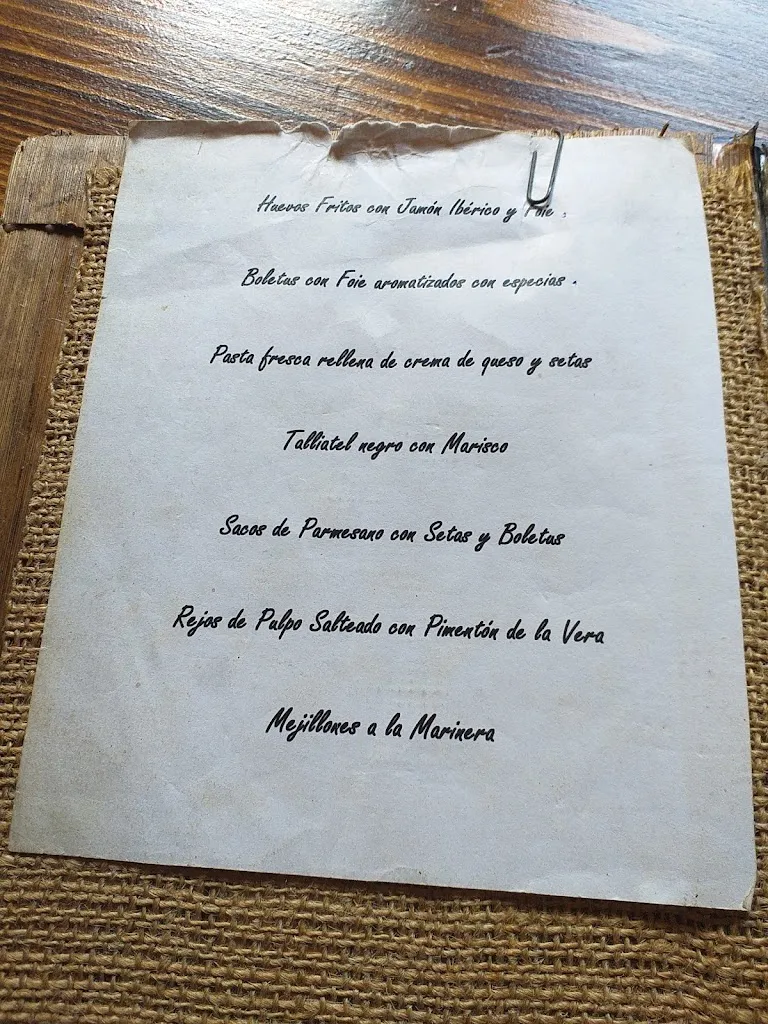 Huevos Fritos con Jamón Ibérico y Foie .
Boletus con Foie aromatizados con especias .
Pasta fresca rellena de crema de queso y setas
Talliatel negro con Marisco
Sacos de Parmesano con Setas y Boletus
Rejos de Pulpo Salteado con Pimentón de la Vera
Mejillones a la Marinera